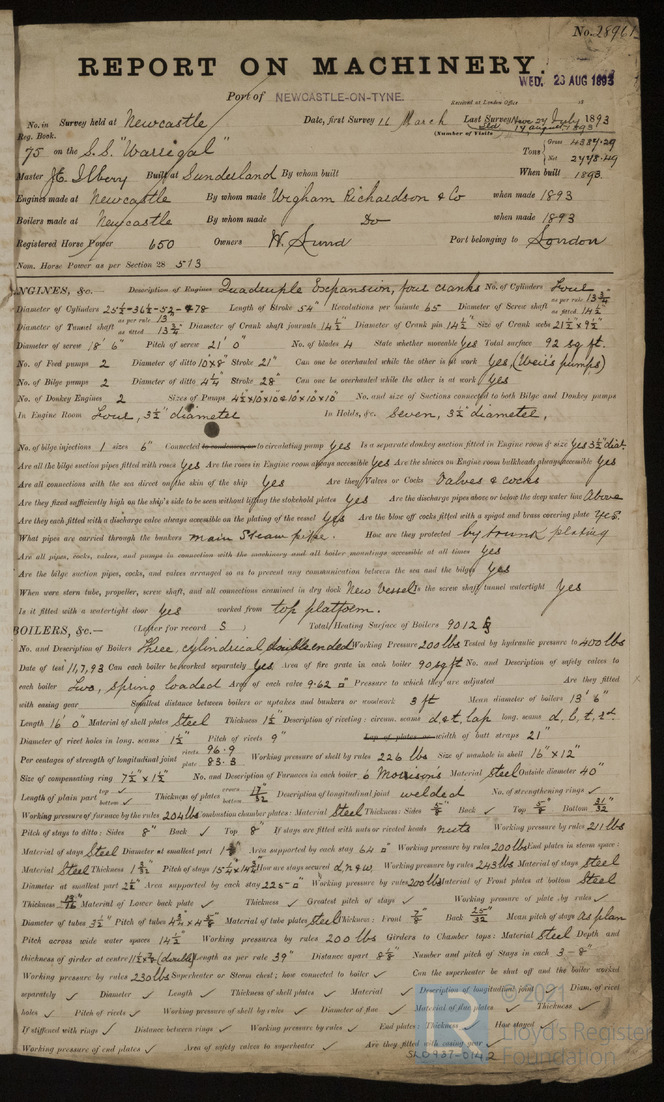 No. 28961
REPORT ON MACHINERY.
WED. 23 AUG 1893
Port of NEWCASTLE-ON-TYNE.
Received at London Office
No. in Survey held at Newcastle Date, first Survey 16 March Last Survey 1893
Reg. Book. (Number of Visits
75 on the S.S. "Warrigal" Tons Gross 4387.29 Net 2778.49
Master Built at Sunderland By whom built When built 1893
Engines made at Newcastle By whom made Wigham Richardson & Co when made 1893
Boilers made at Newcastle By whom made Do when made 1893
Registered Horse Power 650 Owners W. Lund Port belonging to London
Nom. Horse Power as per Section 28 513
ENGINES, &c.— Description of Engines Quadruple Expansion, four cranks No. of Cylinders Four
Diameter of Cylinders 25½-36½-52-78 Length of Stroke 54" Revolutions per minute 65 Diameter of Screw shaft as per rule 13¾ as fitted 14½"
Diameter of Tunnel shaft as per rule 13" as fitted 13¾" Diameter of Crank shaft journals 14½" Diameter of Crank pin 14½" Size of Crank webs 21½"x9½"
Diameter of screw 18' 6" Pitch of screw 21' 0" No. of blades 4 State whether moveable Yes Total surface 92 sq ft.
No. of Feed pumps 2 Diameter of ditto 10"x8" Stroke 21" Can one be overhauled while the other is at work Yes, (Weir's pumps)
No. of Bilge pumps 2 Diameter of ditto 4¼" Stroke 28" Can one be overhauled while the other is at work Yes
No. of Donkey Engines 2 Sizes of Pumps 4½x10x10 & 10x10x10" No. and size of Suctions connected to both Bilge and Donkey pumps
In Engine Room Four, 3½" diameter In Holds, &c. Seven, 3½" diameter,
No. of bilge injections 1 sizes 6" Connected to condenser, or to circulating pump Yes Is a separate donkey suction fitted in Engine room & size Yes 3½" diat.
Are all the bilge suction pipes fitted with roses Yes Are the roses in Engine room always accessible Yes Are the sluices on Engine room bulkheads always accessible Yes
Are all connections with the sea direct on the skin of the ship Yes Are they Valves or Cocks Valves & cocks
Are they fixed sufficiently high on the ship's side to be seen without lifting the stokehold plates Yes Are the discharge pipes above or below the deep water line Above
Are they each fitted with a discharge valve always accessible on the plating of the vessel Yes Are the blow off cocks fitted with a spigot and brass covering plate Yes.
What pipes are carried through the bunkers main Steam pipe. How are they protected by trunk plating
Are all pipes, cocks, valves, and pumps in connection with the machinery and all boiler mountings accessible at all times Yes
Are the bilge suction pipes, cocks, and valves arranged so as to prevent any communication between the sea and the bilges Yes
When were stern tube, propeller, screw shaft, and all connections examined in dry dock New Vessel Is the screw shaft tunnel watertight Yes
Is it fitted with a watertight door Yes worked from top platform.
BOILERS, &c.— (Letter for record S) Total Heating Surface of Boilers 9012
No. and Description of Boilers Three, cylindrical, double ended Working Pressure 200 lbs Tested by hydraulic pressure to 400 lbs
Date of test 11,7,93 Can each boiler be worked separately Yes Area of fire grate in each boiler 90 sq ft No. and Description of safety valves to
each boiler Two, Spring loaded Area of each valve 9.62 □" Pressure to which they are adjusted Are they fitted
with easing gear Smallest distance between boilers or uptakes and bunkers or woodwork 3 ft Mean diameter of boilers 13' 6"
Length 16' 0" Material of shell plates Steel Thickness 1½ Description of riveting: circum. seams d, & t, lap long. seams d, b, t, st.
Diameter of rivet holes in long. seams 1½" Pitch of rivets 9" Lap of plates or width of butt straps 21"
Per centages of strength of longitudinal joint rivets 96.9 plate 83.3 Working pressure of shell by rules 226 lbs Size of manhole in shell 16" x 12"
Size of compensating ring 7½"x1½" No. and Description of Furnaces in each boiler 6 Morrison's Material Steel Outside diameter 40"
Length of plain part top ✓ bottom ✓ Thickness of plates crown bottom 17/32 Description of longitudinal joint welded No. of strengthening rings ✓
Working pressure of furnace by the rules 204 lbs Combustion chamber plates: Material Steel Thickness: Sides 5/8" Back ✓ Top 5/8" Bottom 21/32"
Pitch of stays to ditto: Sides 8" Back ✓ Top 8" If stays are fitted with nuts or riveted heads nuts Working pressure by rules 211 lbs
Material of stays Steel Diameter at smallest part Area supported by each stay 64 □" Working pressure by rules 200 lbs End plates in steam space:
Material Steel Thickness 1 3/32 Pitch of stays How are stays secured d, n & w. Working pressure by rules 243 lbs Material of stays Steel
Diameter at smallest part Area supported by each stay 225 □" Working pressure by rules 200 lbs Material of Front plates at bottom Steel
Thickness Material of Lower back plate ✓ Thickness ✓ Greatest pitch of stays ✓ Working pressure of plate by rules ✓
Diameter of tubes 3½" Pitch of tubes Material of tube plates Steel Thickness: Front 7/8" Back 25/32" Mean pitch of stays as plan
Pitch across wide water spaces 14½" Working pressures by rules 200 lbs Girders to Chamber tops: Material Steel Depth and
thickness of girder at centre (double) Length as per rule 39" Distance apart Number and pitch of Stays in each 3 - 8"
Working pressure by rules 230 lbs Superheater or Steam chest; how connected to boiler ✓ Can the superheater be shut off and the boiler worked
separately ✓ Diameter ✓ Length ✓ Thickness of shell plates ✓ Material ✓ Description of longitudinal joint ✓ Diam. of rivet
holes ✓ Pitch of rivets ✓ Working pressure of shell by rules ✓ Diameter of flue ✓ Material of flue plates ✓ Thickness ✓
If stiffened with rings ✓ Distance between rings ✓ Working pressure by rules ✓ End plates: Thickness ✓ How stayed ✓
Working pressure of end plates ✓ Area of safety valves to superheater ✓ Are they fitted with easing gear ✓
© 2021
Lloyd's Register
Foundation
SLD937-0142